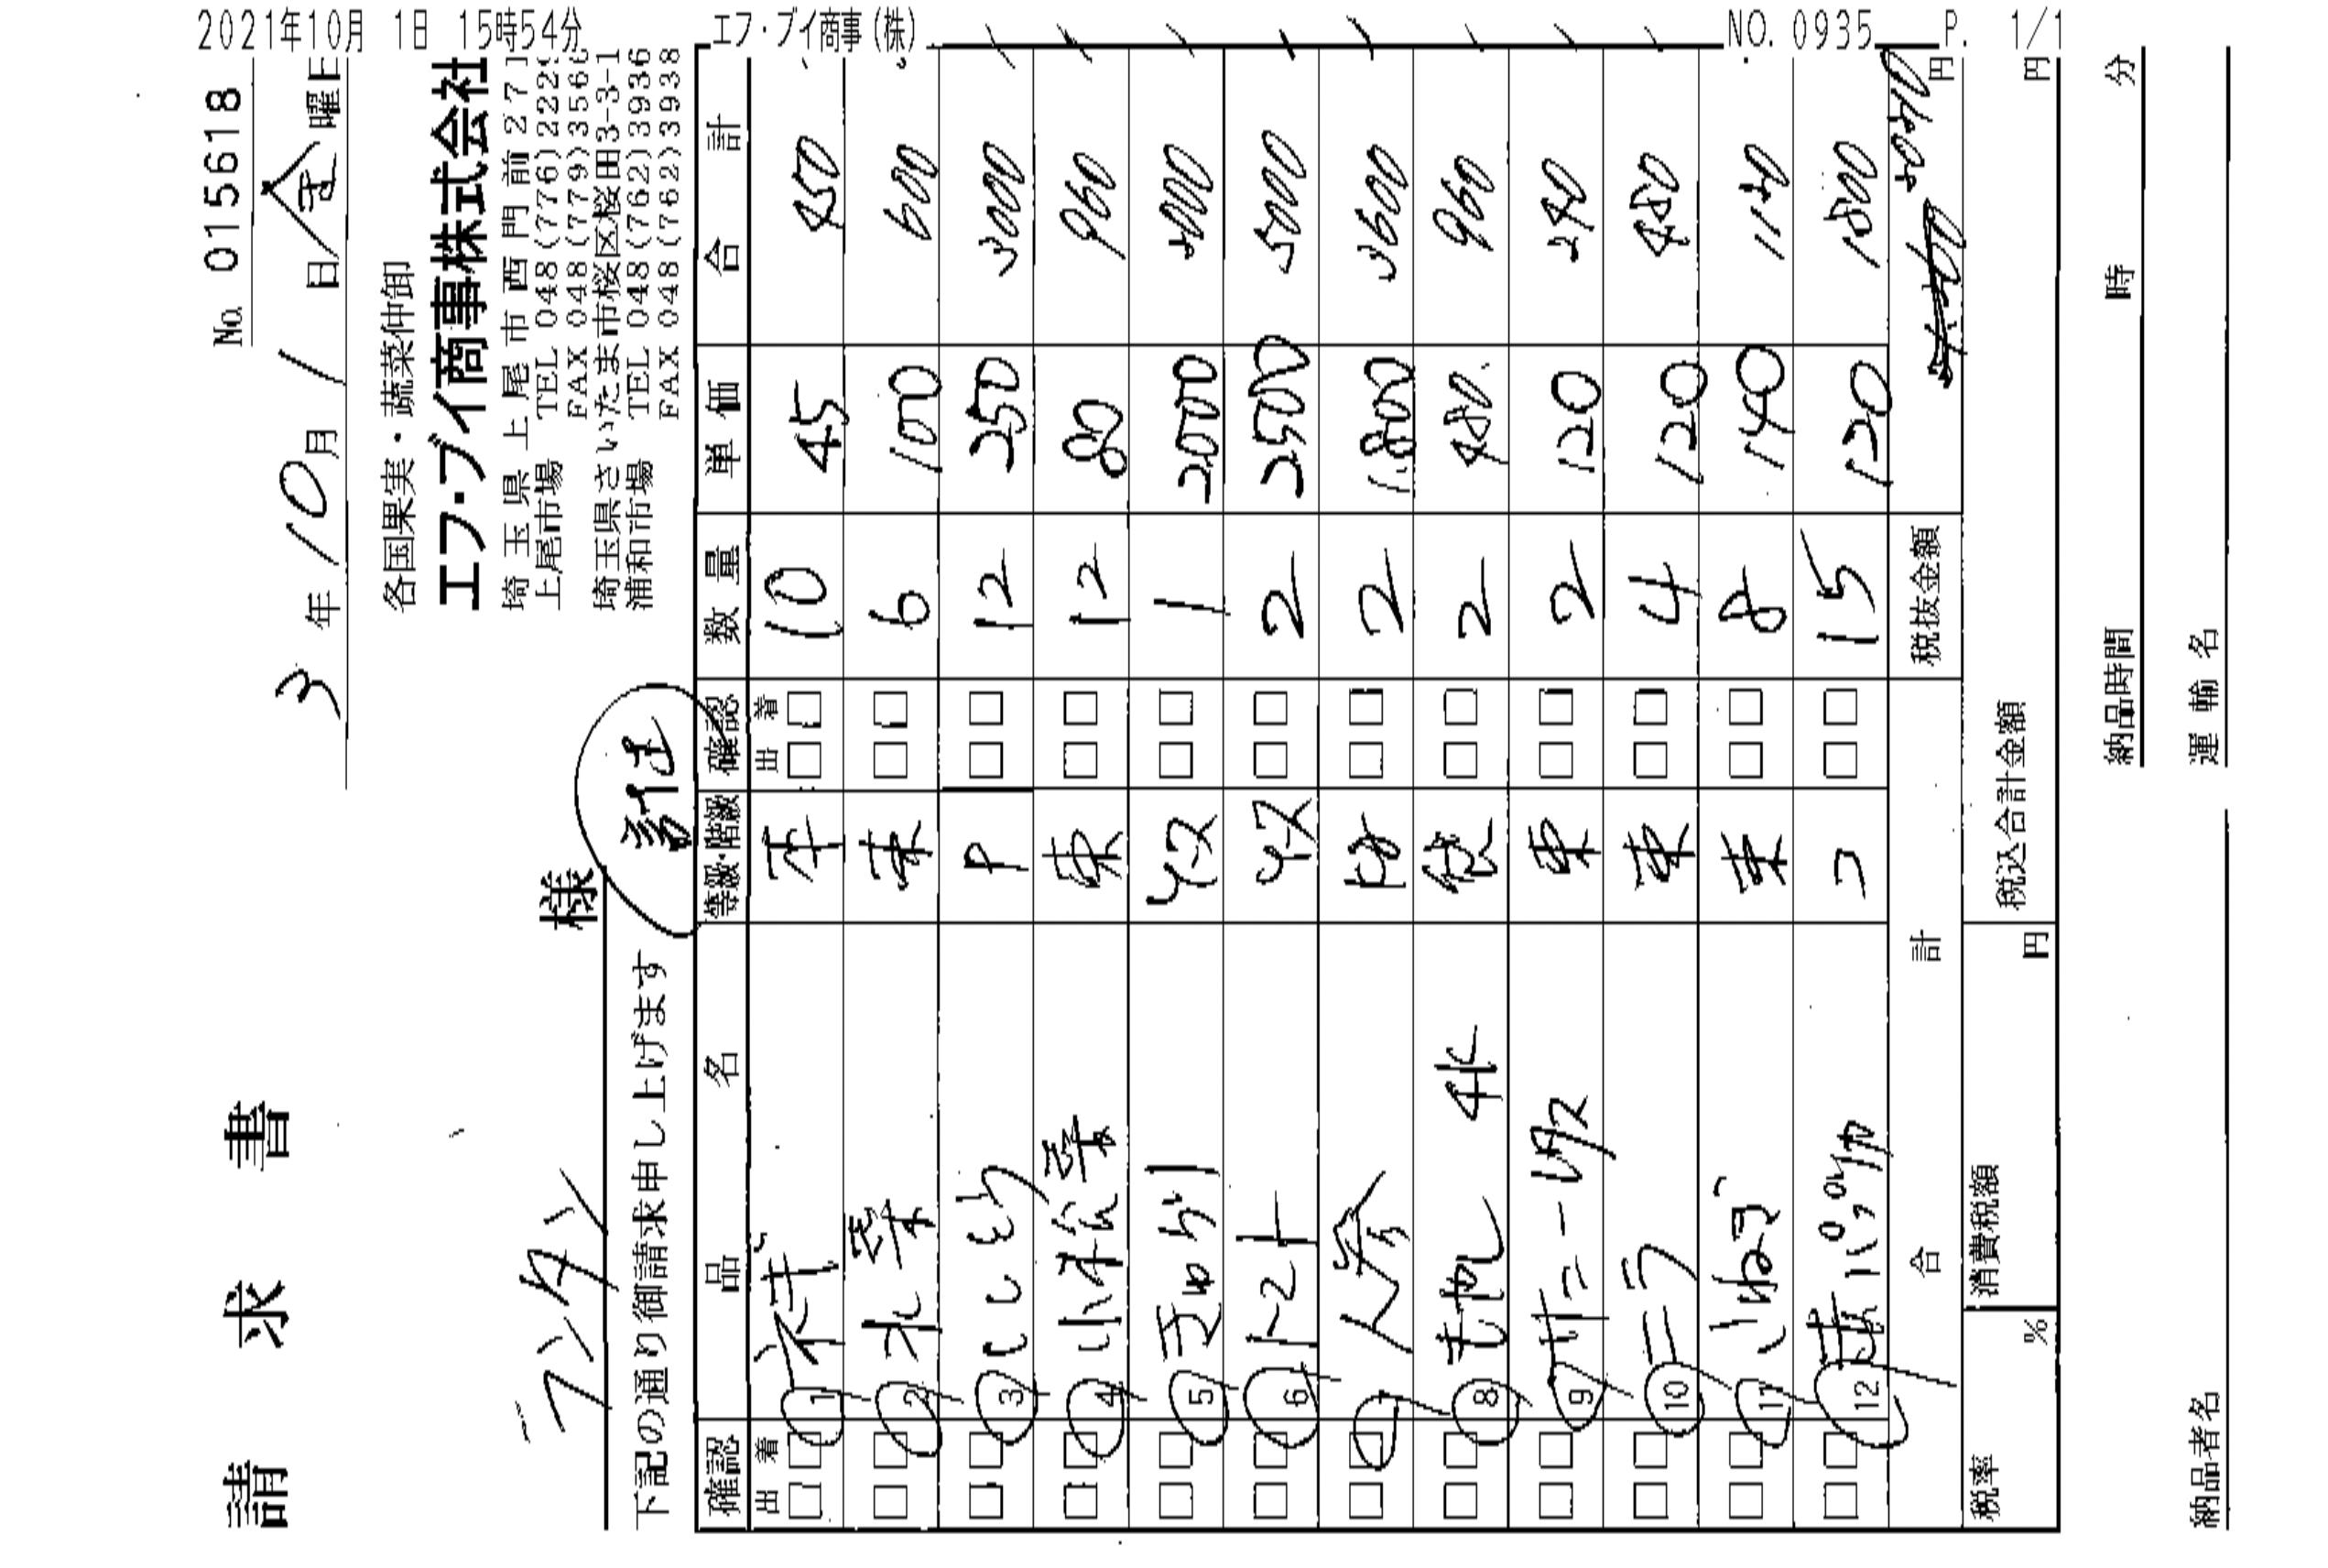 請求書
No. 015618
3年10月1日金曜日
各国果実・蔬菜仲卸
エフ・ブイ商事株式会社
埼玉県上尾市西門前27
上尾市場 TEL 048(776)222
FAX 048(779)356
埼玉県さいたま市桜区桜田3-3-1
浦和市場 TEL 048(762)3936
FAX 048(762)3938
ランタン 様
下記の通り御請求申し上げます
訂正
確認 品名 等級・階級 確認 数量 単価 合計
出 着 出 着
1 ネギ 本 10 45 450
2 水菜 束 6 100 600
3 ししとう P 12 250 3000
4 小松菜 束 12 80 960
5 きゅうり ケース 1 2000 2000
6 トマト ケース 2 2500 5000
7 人参 2 1.800 3600
8 もやし 4K 袋 2 480 960
9 サニーレタス 束 2 120 240
10 ニラ 束 4 120 480
11 こねぎ 束 8 140 1120
12 赤パプリカ コ 15 120 1800
合計 税抜金額 20210円
税率 % 消費税額 円 税込合計金額 円
納品時間 時 分
納品者名 運輸名
2021年10月 1日 15時54分 エフ・ブイ商事(株) NO. 0935 P. 1/1